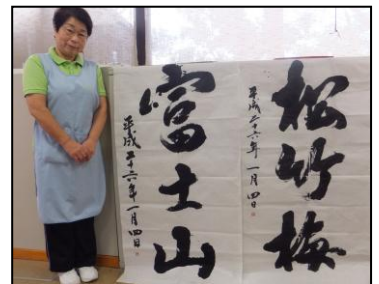 松竹梅
平成二十六年 一月四日
富士山
平成二十六年 一月四日